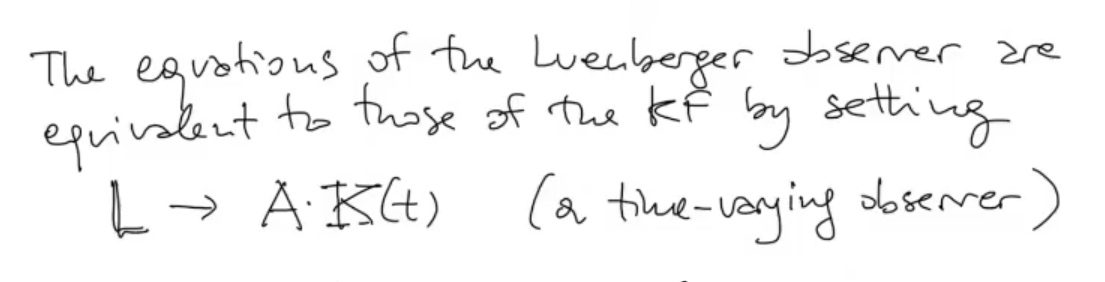 The equations of the Luenberger observer are
equivalent to those of the KF by setting
L → A·K(t) (a time-varying observer)